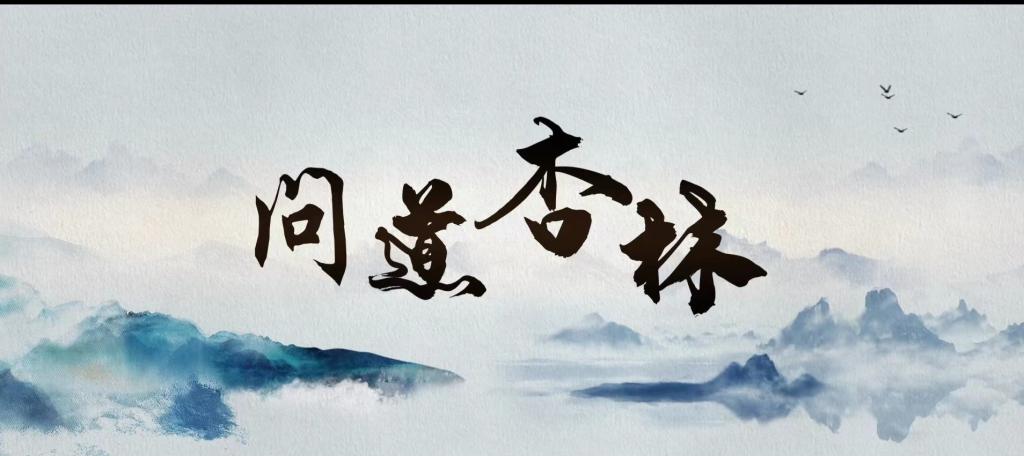 问道杏林